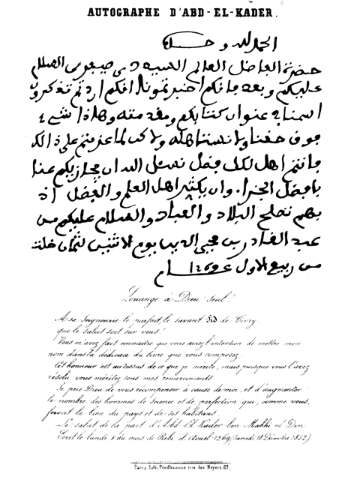 AUTOGRAPHE D'ABD-EL-KADER.
الحمد لله وحده
حضرة الفاضل العالم السيد دي صيفري السلام
عليكم وبعد فانكم اخبرتمونا انكم اردتم تذكرون
اسمنا في عنوان كتابكم ومقدمته وهاذا شيء
فوق حقنا ولا نستاهله ولاكن لما عزمتم على ذالك
فانتم اهل لكل فضل نسئل الله ان يجازيكم عنا
بافضل الجزاء وان يكثر اهل العلم والفضل اذ
بهم تصلح البلاد والعباد والسلام عليكم من
عبد القادر بن محيي الدين يوم الاثنين لثمان خلت
من ربيع الاول عام ١٢٦٩
Louange à Dieu seul
A sa Seigneurie le parfait, le savant Sid de Civry
que le salut soit sur vous!
Vous m'avez fait connaître que vous aviez l'intention de mettre mon
nom dans la dédicace du livre que vous composez.
Cet honneur est au-dessus de ce que je mérite, mais puisque vous l'avez
résolu vous méritez tous mes remerciements.
Je prie Dieu de vous récompenser à cause de moi, et d'augmenter
le nombre des hommes de science et de perfection qui, comme vous,
feront le bien du pays et de ses habitants.
Le salut de la part d'Abd El Kader ben Mahhi el Din.
Ecrit le lundi 8 du mois de Rebi el Aouel 1269 (Samedi 18 Décembre 1852)